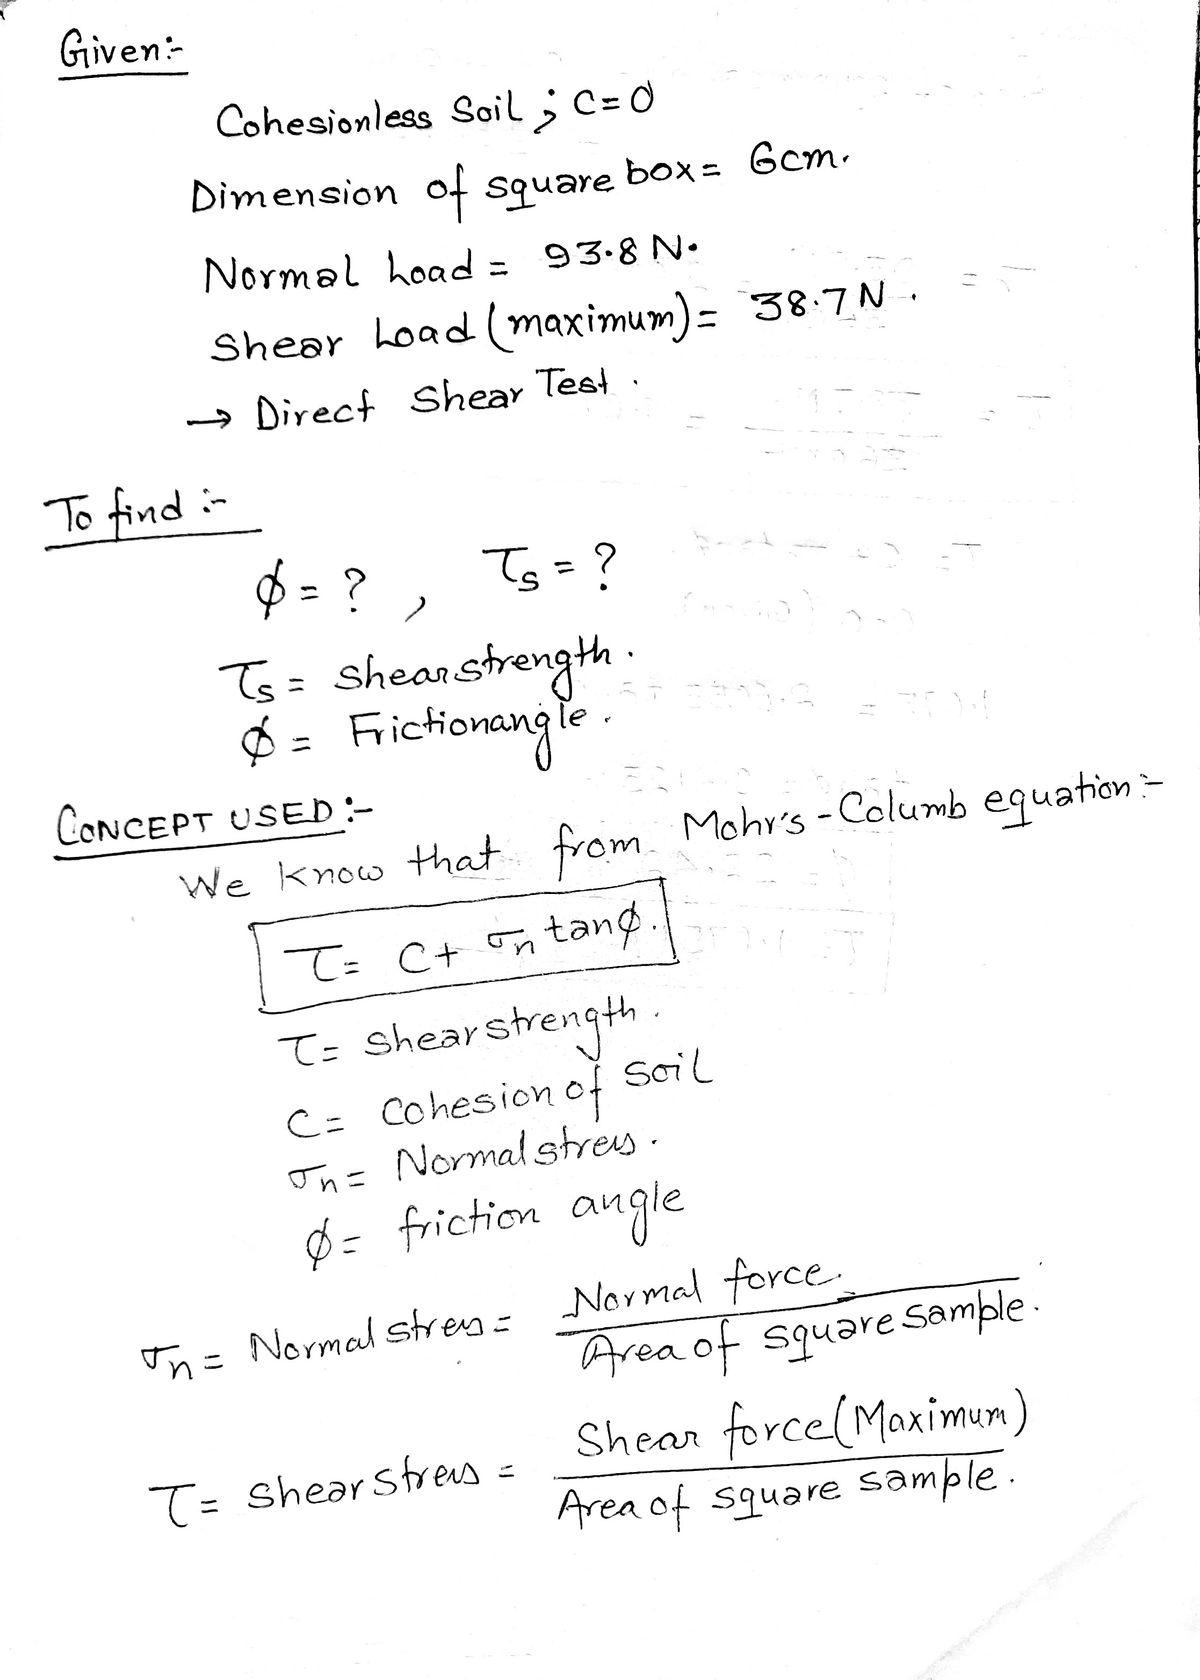 Given:-
Cohesionless Soil ; C=0
Dimension of square box = 6cm.
Normal Load = 93.8 N.
Shear Load (maximum) = 38.7 N.
→ Direct Shear Test.
To find :-
ϕ = ? , τs = ?
τs = shear strength.
ϕ = Frictionangle.
CONCEPT USED :-
We know that from Mohr's - Columb equation :-
τ = C + σn tanϕ.
τ = shear strength.
C = Cohesion of soil
σn = Normal stress.
ϕ = friction angle
σn = Normal stress = Normal force. / Area of square sample.
τ = shear stress = Shear force (Maximum) / Area of square sample.